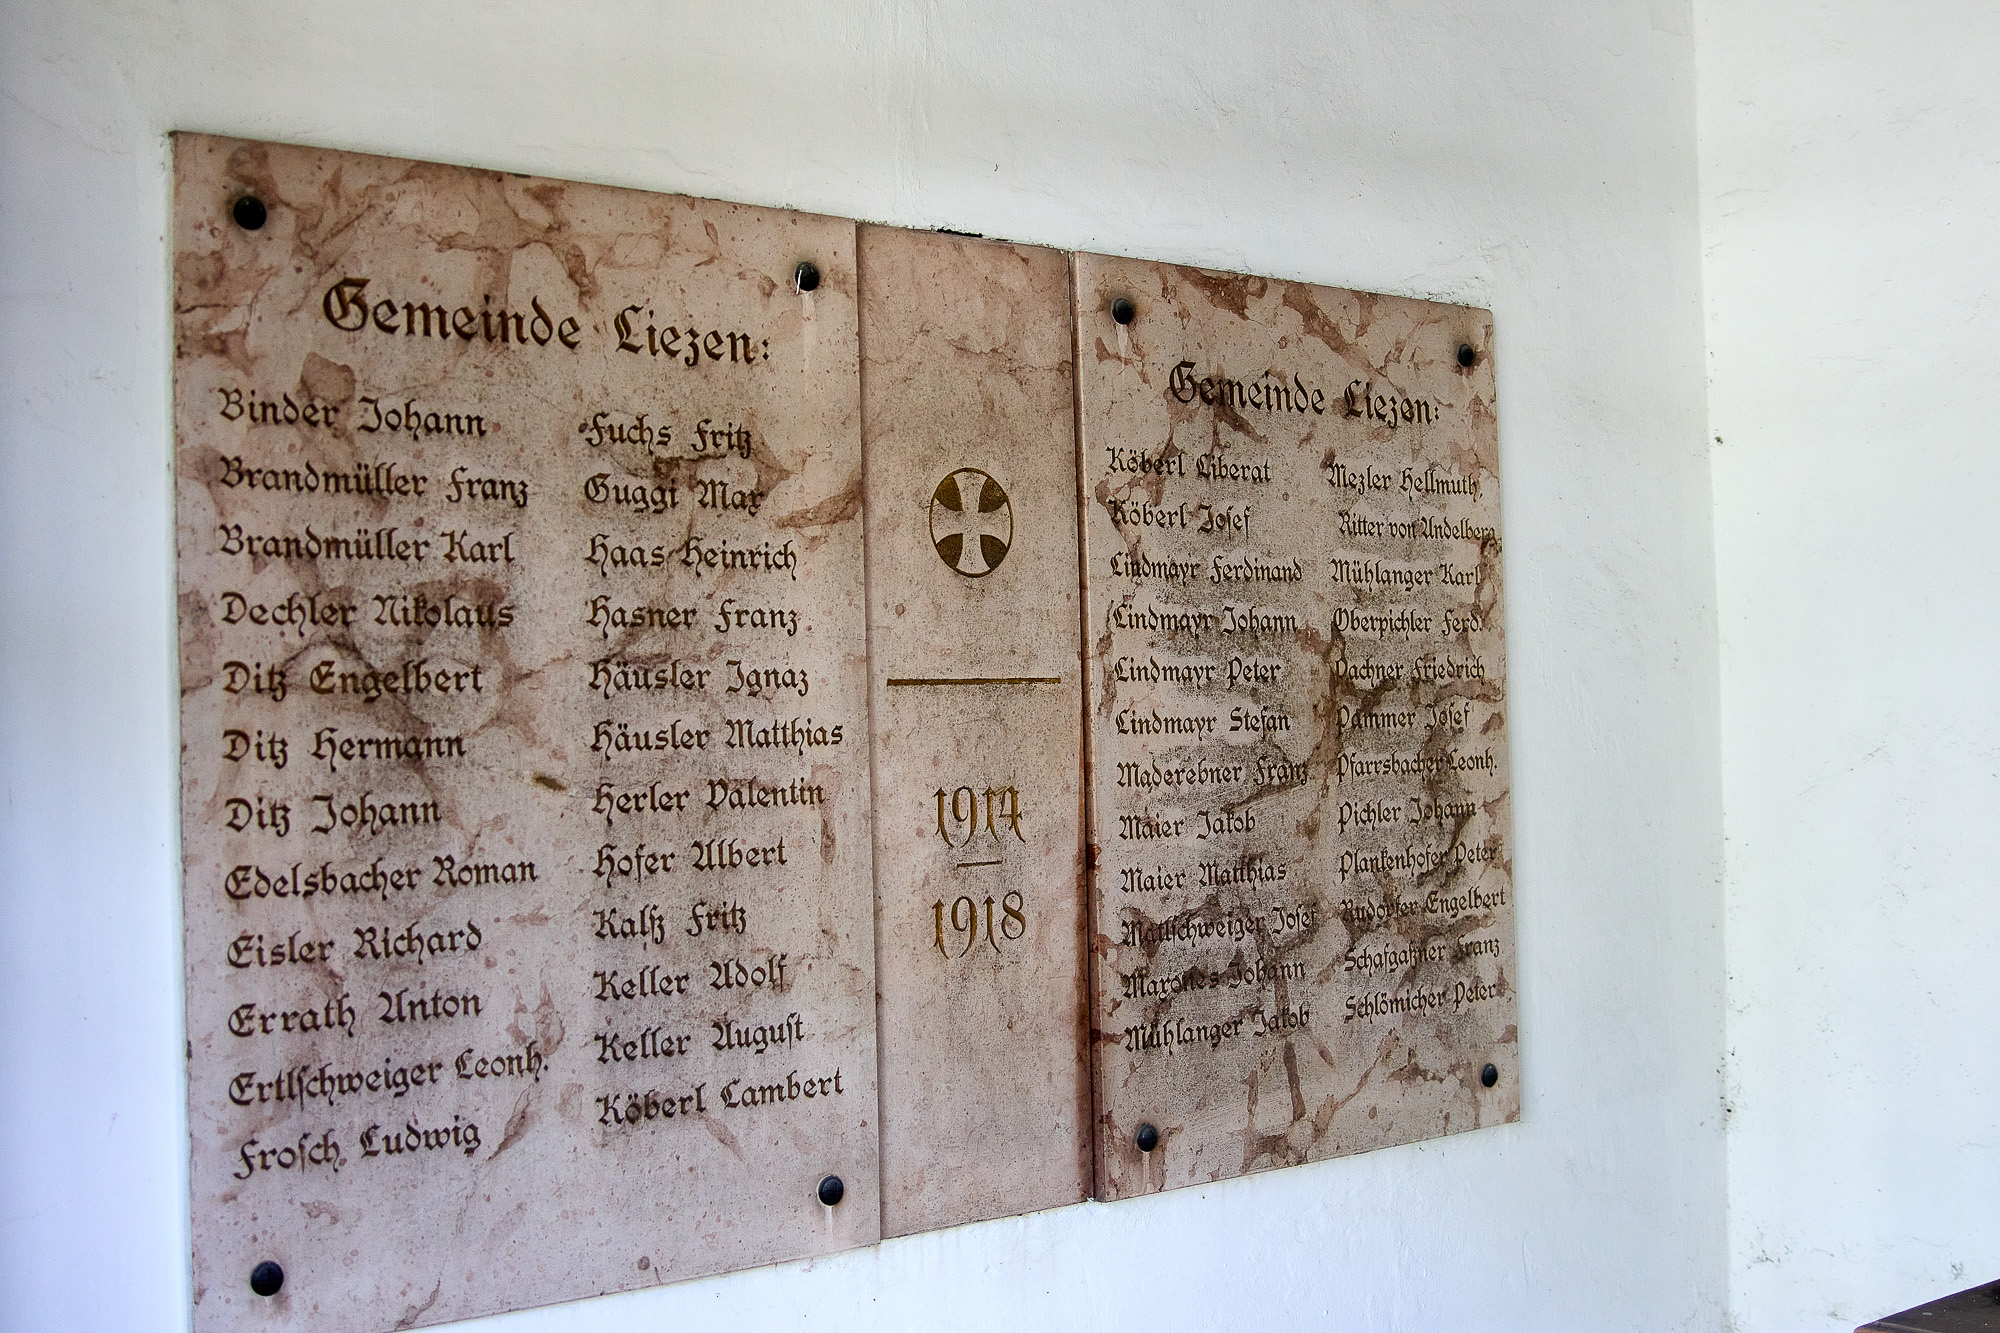 Gemeinde Liezen:
Binder Johann
Brandmüller Franz
Brandmüller Karl
Dechler Nikolaus
Ditz Engelbert
Ditz Hermann
Ditz Johann
Edelsbacher Roman
Eisler Richard
Errath Anton
Ertlschweiger Leonh.
Frosch Ludwig
Fuchs Fritz
Guggi Max
Haas Heinrich
Hasner Franz
Häusler Ignaz
Häusler Matthias
Herler Valentin
Hofer Albert
Kalß Fritz
Keller Adolf
Keller August
Köberl Lambert
1914
–
1918
Gemeinde Liezen:
Köberl Liberat
Köberl Josef
Lindmayr Ferdinand
Lindmayr Johann
Lindmayr Peter
Lindmayr Stefan
Maderebner Franz
Maier Jakob
Maier Matthias
Mattlschweiger Josef
Maxones Johann
Mühlanger Jakob
Mezler Hellmuth,
Ritter von Andelberg
Mühlanger Karl
Oberpichler Ferd.
Pachner Friedrich
Pammer Josef
Pfarrsbacher Leonh.
Pichler Johann
Plankenhofer Peter
Rudorfer Engelbert
Schafgaßner Franz
Schlömicher Peter